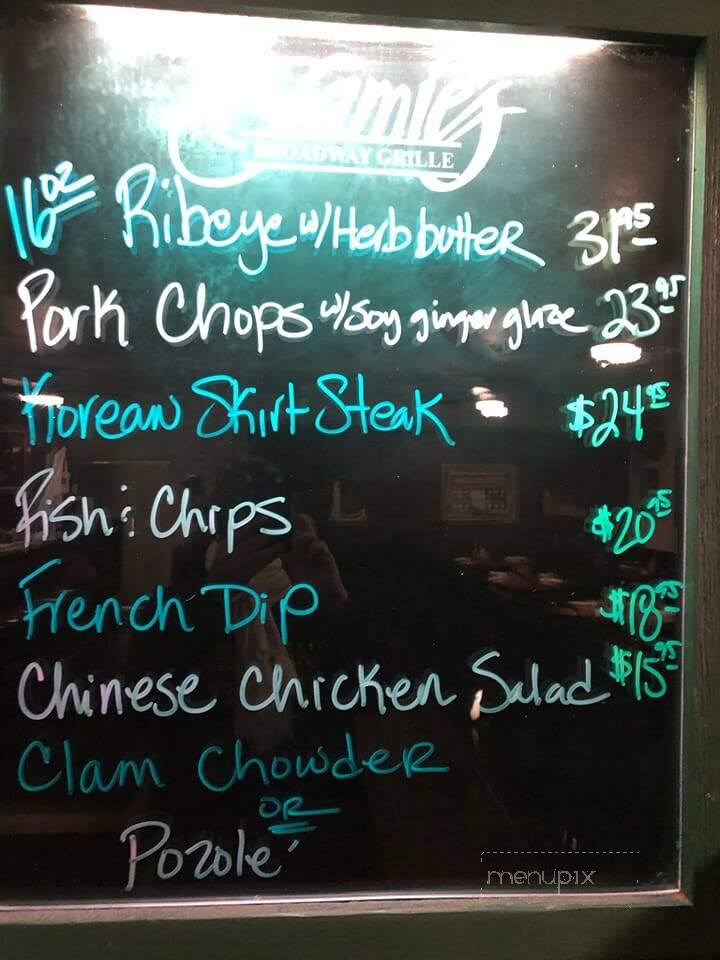 Jamie's
BROADWAY GRILLE
16oz Ribeye w/Herb butter 31.95
Pork Chops w/soy ginger glaze 23.95
Korean Skirt Steak $24.95
Fish & Chips $20.95
French Dip $18.95
Chinese Chicken Salad $15.95
Clam Chowder
OR
Pozole
menupix